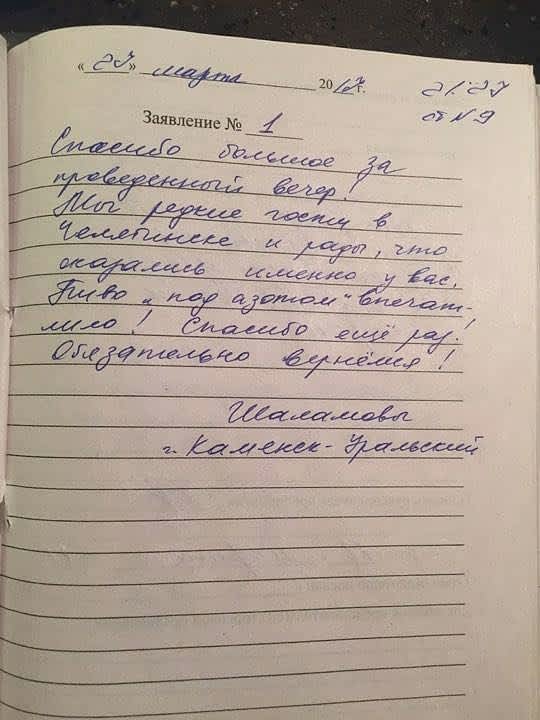 « 27 » марта 2017 г. 21:27
ст N 9
Заявление № 1
Спасибо большое за
проведенный вечер!
Мы редкие гости в
Челябинске и рады, что
оказались именно у вас.
Пиво „под азотом" впечат-
лило! Спасибо ещё раз!
Обязательно вернёмся!
Шаламовы
г. Каменск-Уральский